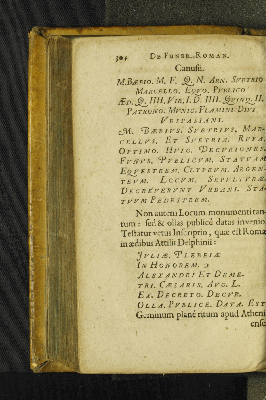 304 DE FUNER. ROMAN.
Canusii.
M. BÆBIO. M. F. Q. N. ARN. SVETRIO
MARCELLO. EQVO. PVBLICO
ÆD. Q. IIII. VIR. I. D. IIII. QVINQ. II.
PATRONO. MVNIC. FLAMINI. DIVI.
VESPASIANI.
M. BÆBIVS. SVETRIVS. MAR-
CELLVS. ET SVETRIA. RVFA.
OPTIMO. HVIC. DECVRIONES.
FVNVS. PVBLICVM. STATVAM
EQVESTREM. CLYPEVM. ARGEN-
TEVM. LOCVM. SEPVLTVRÆ.
DECREVERVNT VRBANI. STA-
TVVM PEDESTREM.
Non autem Locum monumenti tan-
tum: sed & ollas publicè datas invenio.
Testatur vetus Inscriptio, quæ est Romæ
in ædibus Attilii Delphinii:
IVLIÆ. PLEBEIÆ
IN HONOREM.
ALEXANDRI ET DEME-
TRI. CÆSARIS. AVG. L.
EX. DECRETO. DECVR.
OLLA. PVBLICE. DATA. EST
Geminum planè ritum apud Atheni-
enses